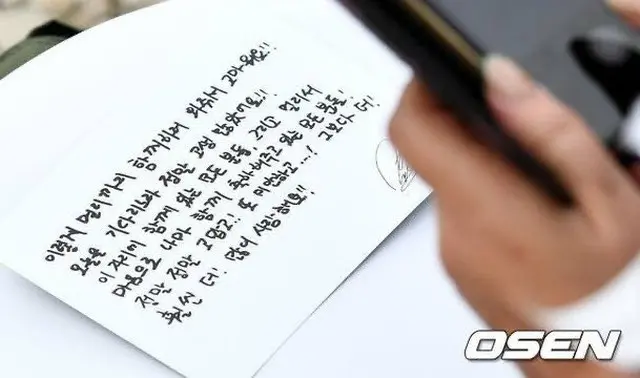 이렇게 멀리까지 함께하러 와줘서 고마워요!!
오늘은 기다리느라 정말 고생 많았어요!!
이 자리에 함께 있는 모든 분들, 그리고 멀리서
마음으로 나마 함께 축하해주고 있는 모든 분들!
정말 정말 고맙고!! 또 미안하고...! 그보다 더!
훨씬 더! 많이 사랑해요!!
OSEN